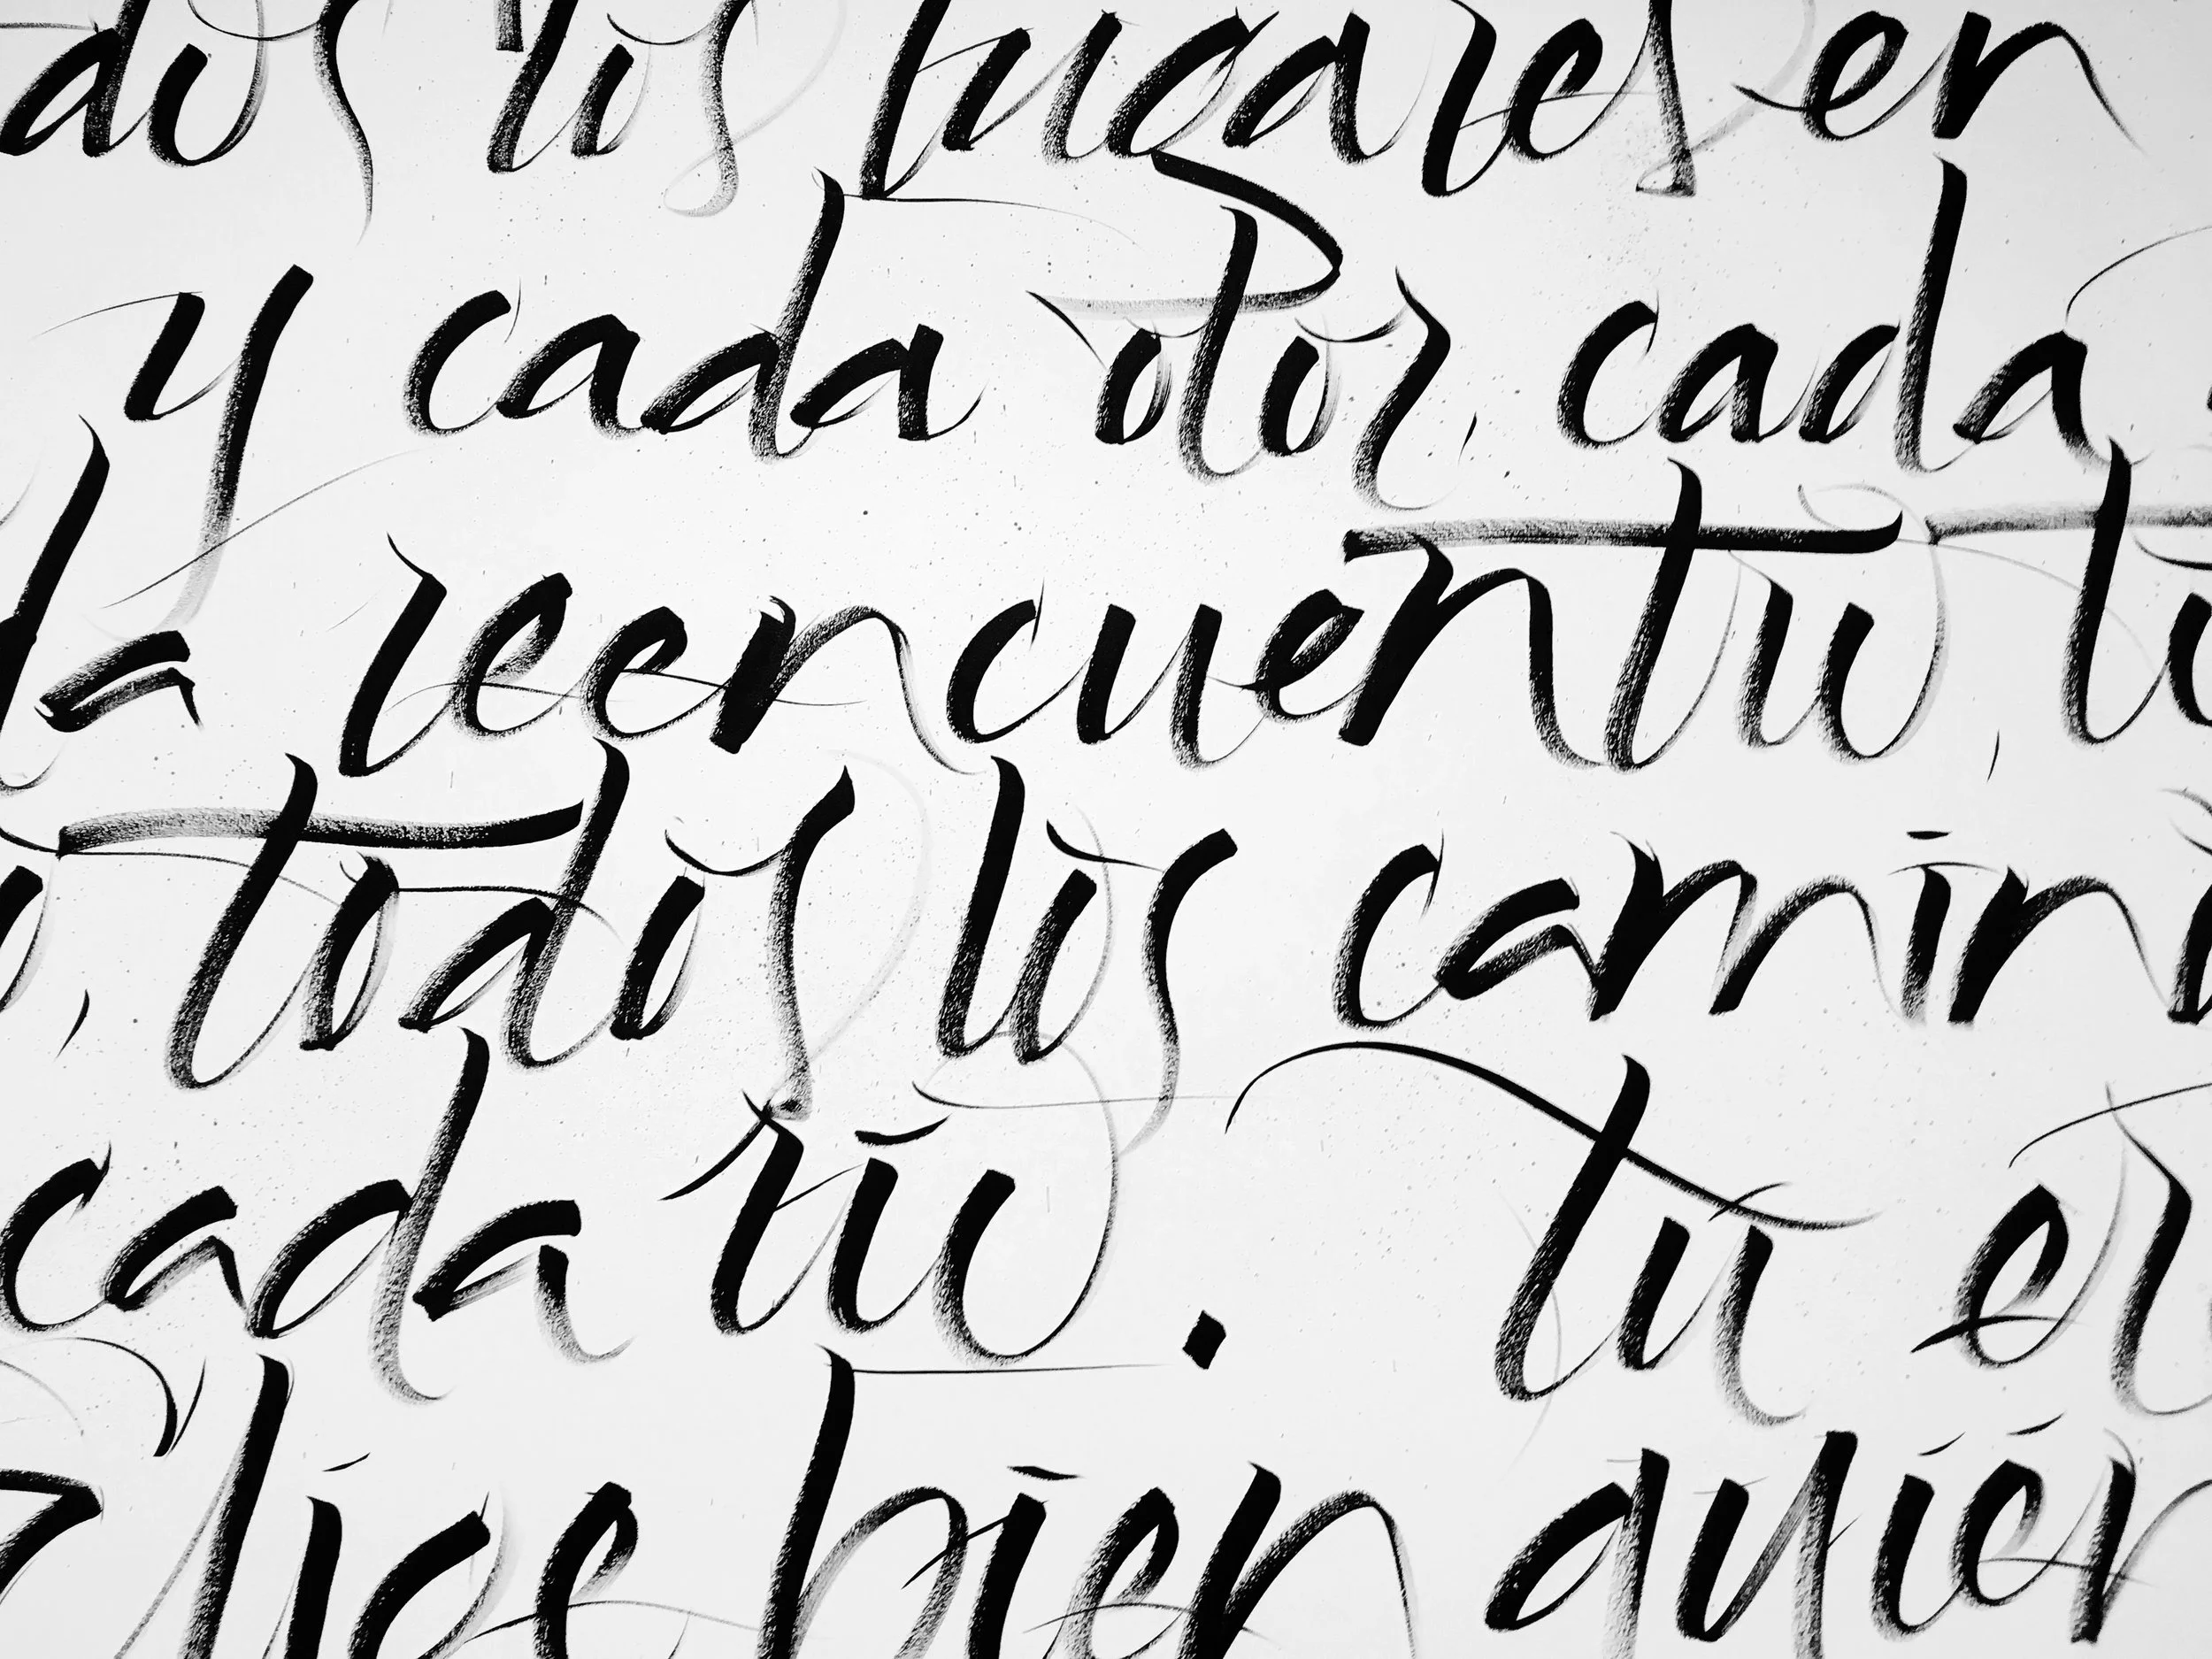 dos los lugares en
y cada olor, cada
da reencuentro, to
o, todos los camin
cada río. tu er
elige bien quién